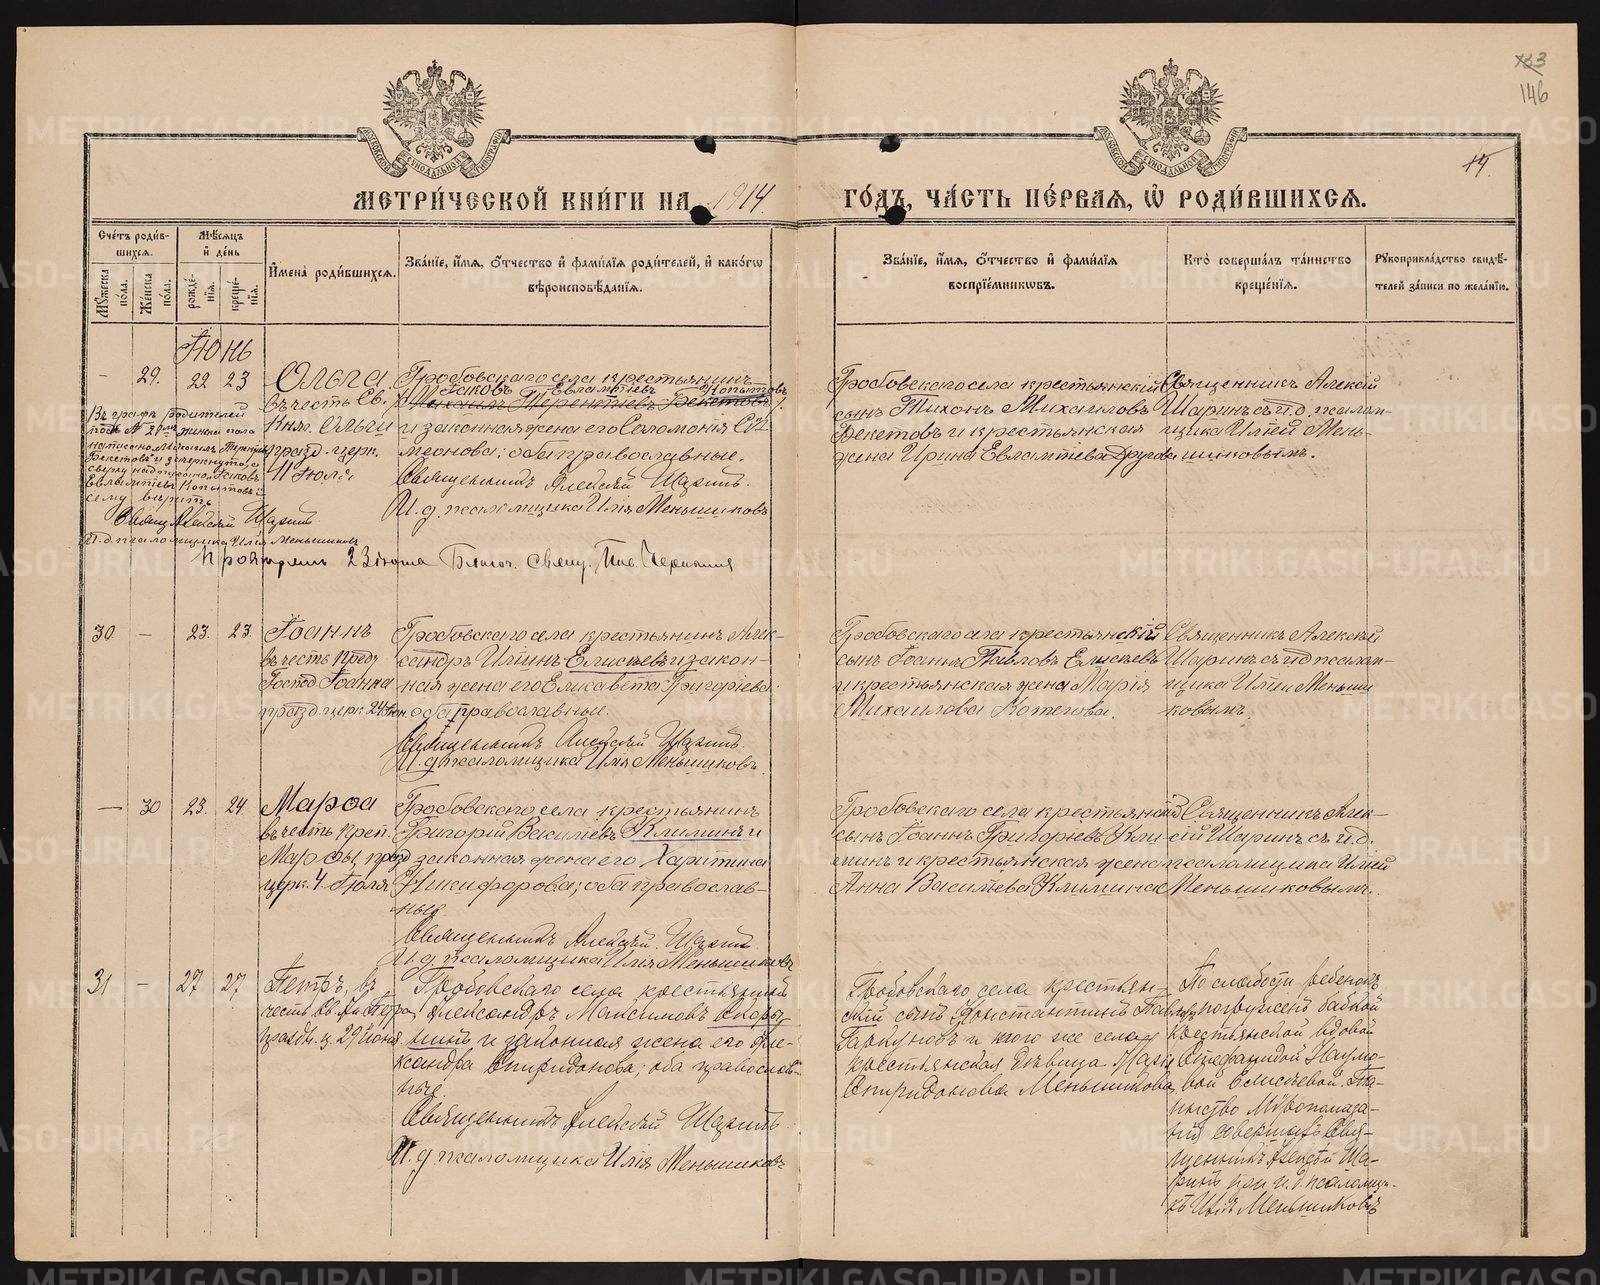 МЕТРИ́ЧЕСКОЙ КНИ́ГИ НА 1914 ГО́ДЪ, ЧА́СТЬ ПЕ́РВАЯ, Ѡ҆ РОДИ́ВШИХСЯ.
146
Сче́тъ роди́в-
шихся.
Мꙋ́жеска по́ла.
Же́нска по́ла.
Мѣ́сяцъ
и҆ де́нь
рожде́-
нїя.
креще́-
нїя.
И҆мена̀ роди́вшихся.
Зва́нїе, и҆́мя, ѻ҆́тчество и҆ фами́лїя роди́телей, и҆ како́гѡ
вѣроисповѣ́данїя.
Зва́нїе, и҆́мя, ѻ҆́тчество и҆ фами́лїя
воспрїе́мниковъ.
Кто̀ соверша́лъ та́инство
креще́нїя.
Рꙋкоприкла́дство свидѣ́-
телей за́писи по жела́нїю.
Іюнь
- 29. 22 23
Ольга
въ честь Св.
Княг. Ольги
празд. церк.
11 Іюля
Гробовскаго села крестьянинъ
Іаковъ Евлампіевъ Копытовъ
Михаилъ Терентіевъ Бекетовъ
и законная жена его Соломонія Си-
меонова; оба православные.
Священникъ Алексій Шаринъ.
И. д. псаломщика Илія Меньшиковъ
Гробовскаго села крестьянскій
сынъ Тихонъ Михаиловъ
Бекетовъ и крестьянская
жена Ирина Евлампіева
Священникъ Алексій
Шаринъ съ и. д. псалом-
щика Иліей Мень-
шиковымъ.
Въ графѣ родителей
подъ № 29 женска пола
написано Михаилъ Терентіевъ
Бекетовъ и зачеркнуто, а
сверху надписано Іаковъ
Евлампіевъ Копытовъ
сему вѣрить
Свящ. Алексій Шаринъ
И. д. псаломщика Илія Меньшиковъ
23 Іюля Благоч. свящ.
30 - 23. 23.
Іоаннъ
въ честь Пред.
Господ. Іоанна
празд. церк. 24 Іюн.
Гробовскаго села крестьянинъ Алек-
сандръ Иліинъ Елисѣевъ и закон-
ная жена его Елисавета Григоріева
оба православные.
Священникъ Алексій Шаринъ.
И. д. псаломщика Илія Меньшиковъ.
Гробовскаго села крестьянскій
сынъ Іоаннъ Павловъ Елисѣевъ
и крестьянская жена Марія
Михаилова Котегова.
Священникъ Алексій
Шаринъ съ и д псалом-
щика Иліей Меньши
ковымъ.
- 30 23. 24
Марѳа
въ честь Преп.
Марѳы, празд
церк. 4 Іюля
Гробовскаго села крестьянинъ
Григорій Василіевъ Климинъ и
законная жена его Харитина
Никифорова; оба православ-
ные
Священникъ Алексій Шаринъ
И. д. псаломщика Илія Меньшиковъ
Гробовскаго села крестьянскій
сынъ Іоаннъ Григоріевъ Кли
минъ и крестьянская жена
Анна Василіева Климина
Священникъ Алек-
сій Шаринъ съ и. д.
псаломщика Иліей
Меньшиковымъ.
31 - 27 27
Петръ, въ
честь Св. Ап. Петра,
праздн. ц. 29 Іюня
Гробовскаго села крестьянинъ
Александръ Максимовъ
и законная жена его Але-
ксандра Спиридонова; оба православ-
ные.
Священникъ Алексій Шаринъ
И. д. псаломщика Илія Меньшиковъ
Гробовскаго села крестьян-
скій сынъ Константинъ
и того же села
крестьянская дѣвица
Спиридонова Меньшикова
По слабости ребенокъ
погруженъ бабкой
крестьянской вдовой
Стефанидой Наумо-
вой Елисѣевой. Та-
инство Мѵропомаза-
нія совершалъ Свя-
щенникъ Алексій Ша-
ринъ при и. д. псаломщи-
кѣ Иліѣ Меньшиковѣ
METRIKI.GASO-URAL.RU